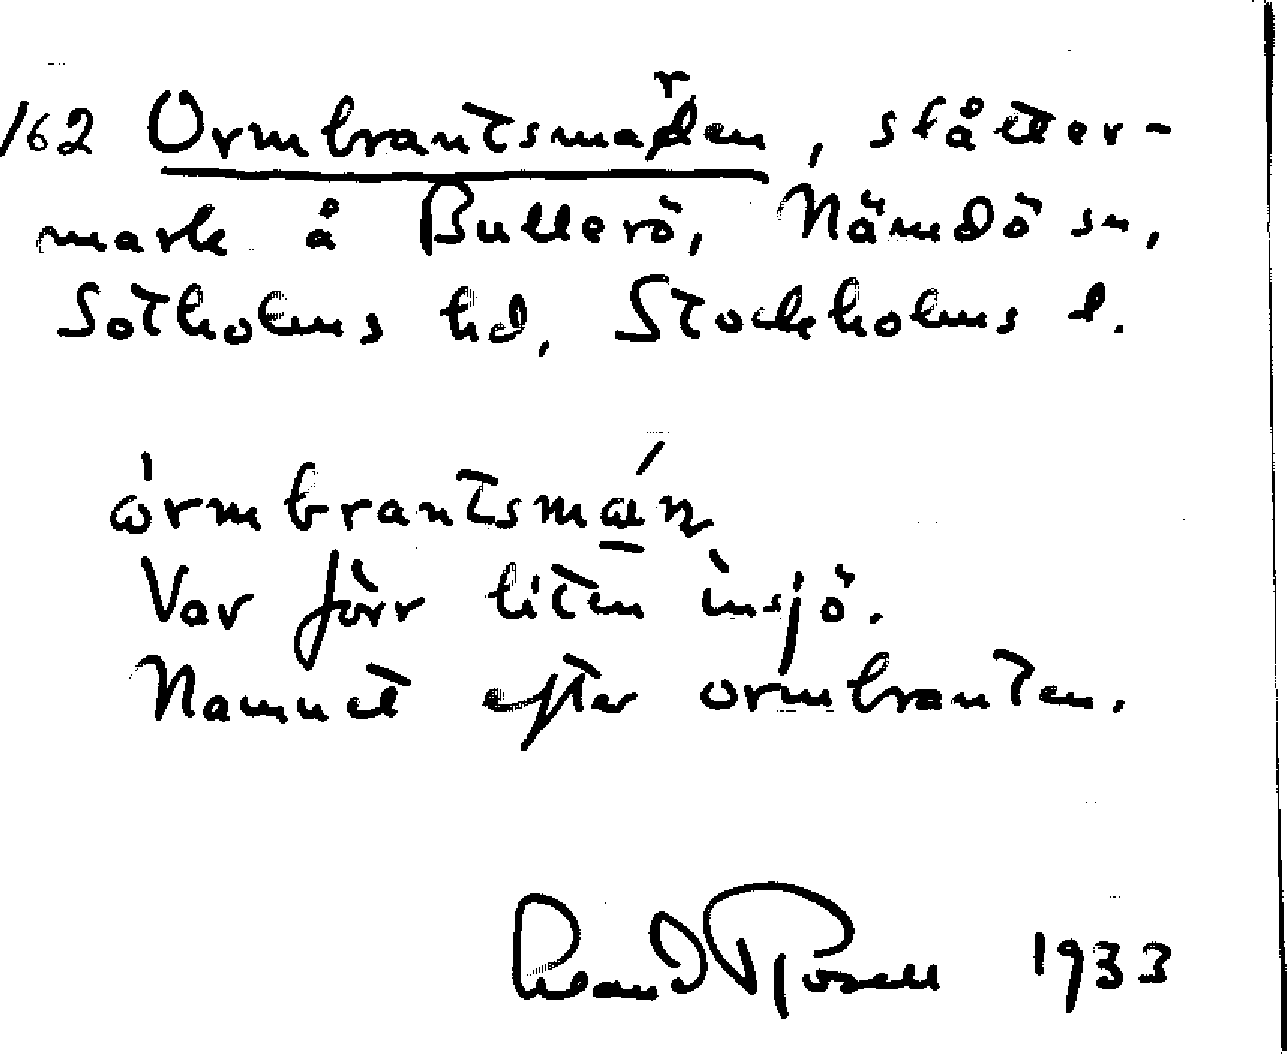 162 Ormbrantsmaren, slåtter-
mark å Bullerö, Nämdö sn,
Sotholms hd, Stockholms l.
òrmbrantsmán
Var förr liten insjö.
Namnet efter ormbranten.
Rosell 1933